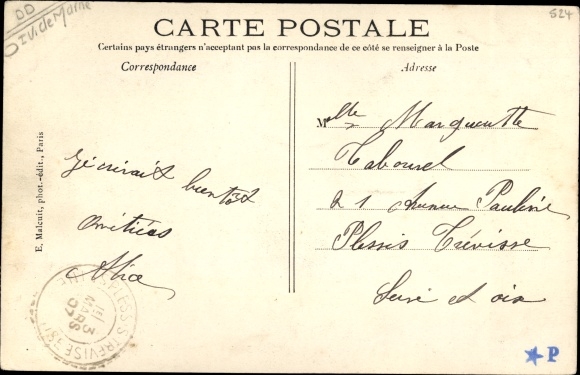 DD
Divide Marne
524
CARTE POSTALE
Certains pays étrangers n'acceptant pas la correspondance de ce côté se renseigner à la Poste
Correspondance
Adresse
E. Malcuit, phot.-édit., Paris
J'écrirait bientôt
Amitiées
Alice
Mlle Marguerite
Tabourel
21 Avenue Pauline
Plessis Trévisse
Seine et oise
PLESSIS TREVISE
3
MARS
07
P